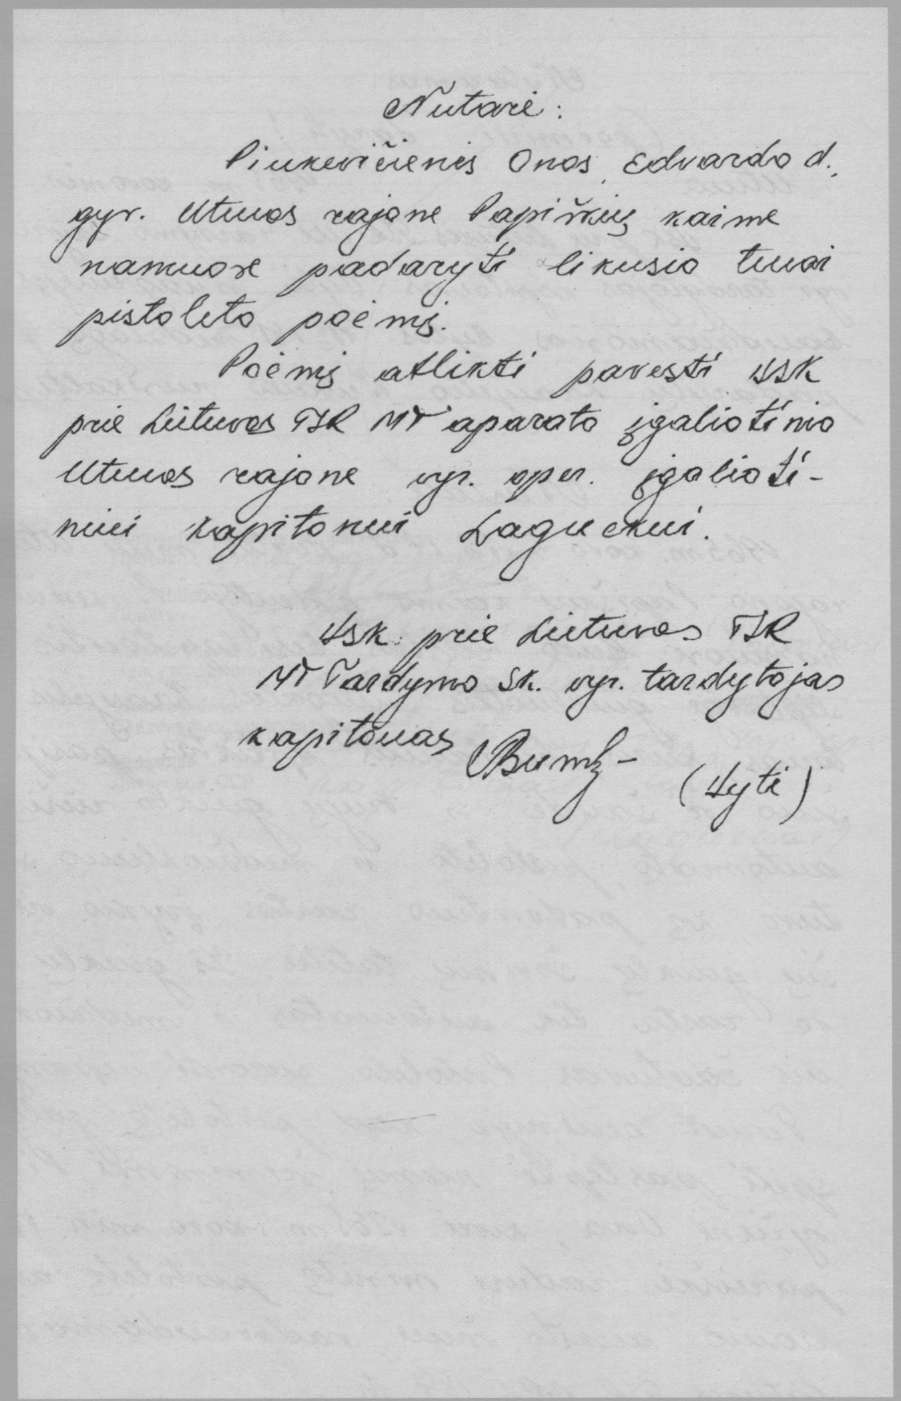 Nutarė:
Piukevičienės Onos, Edvardo d.,
gyv. Utenos rajone Papiškių kaime
namuose padaryti likusio tenai
pistoleto poėmį.
Poėmį atlikti pavesti VSK
prie Lietuvos TSR MT aparato įgaliotinio
Utenos rajone vyr. oper. įgalioti-
niui kapitonui Laguckui.
VSK prie Lietuvos TSR
MT Tardymo sk. vyr. tardytojas
kapitonas